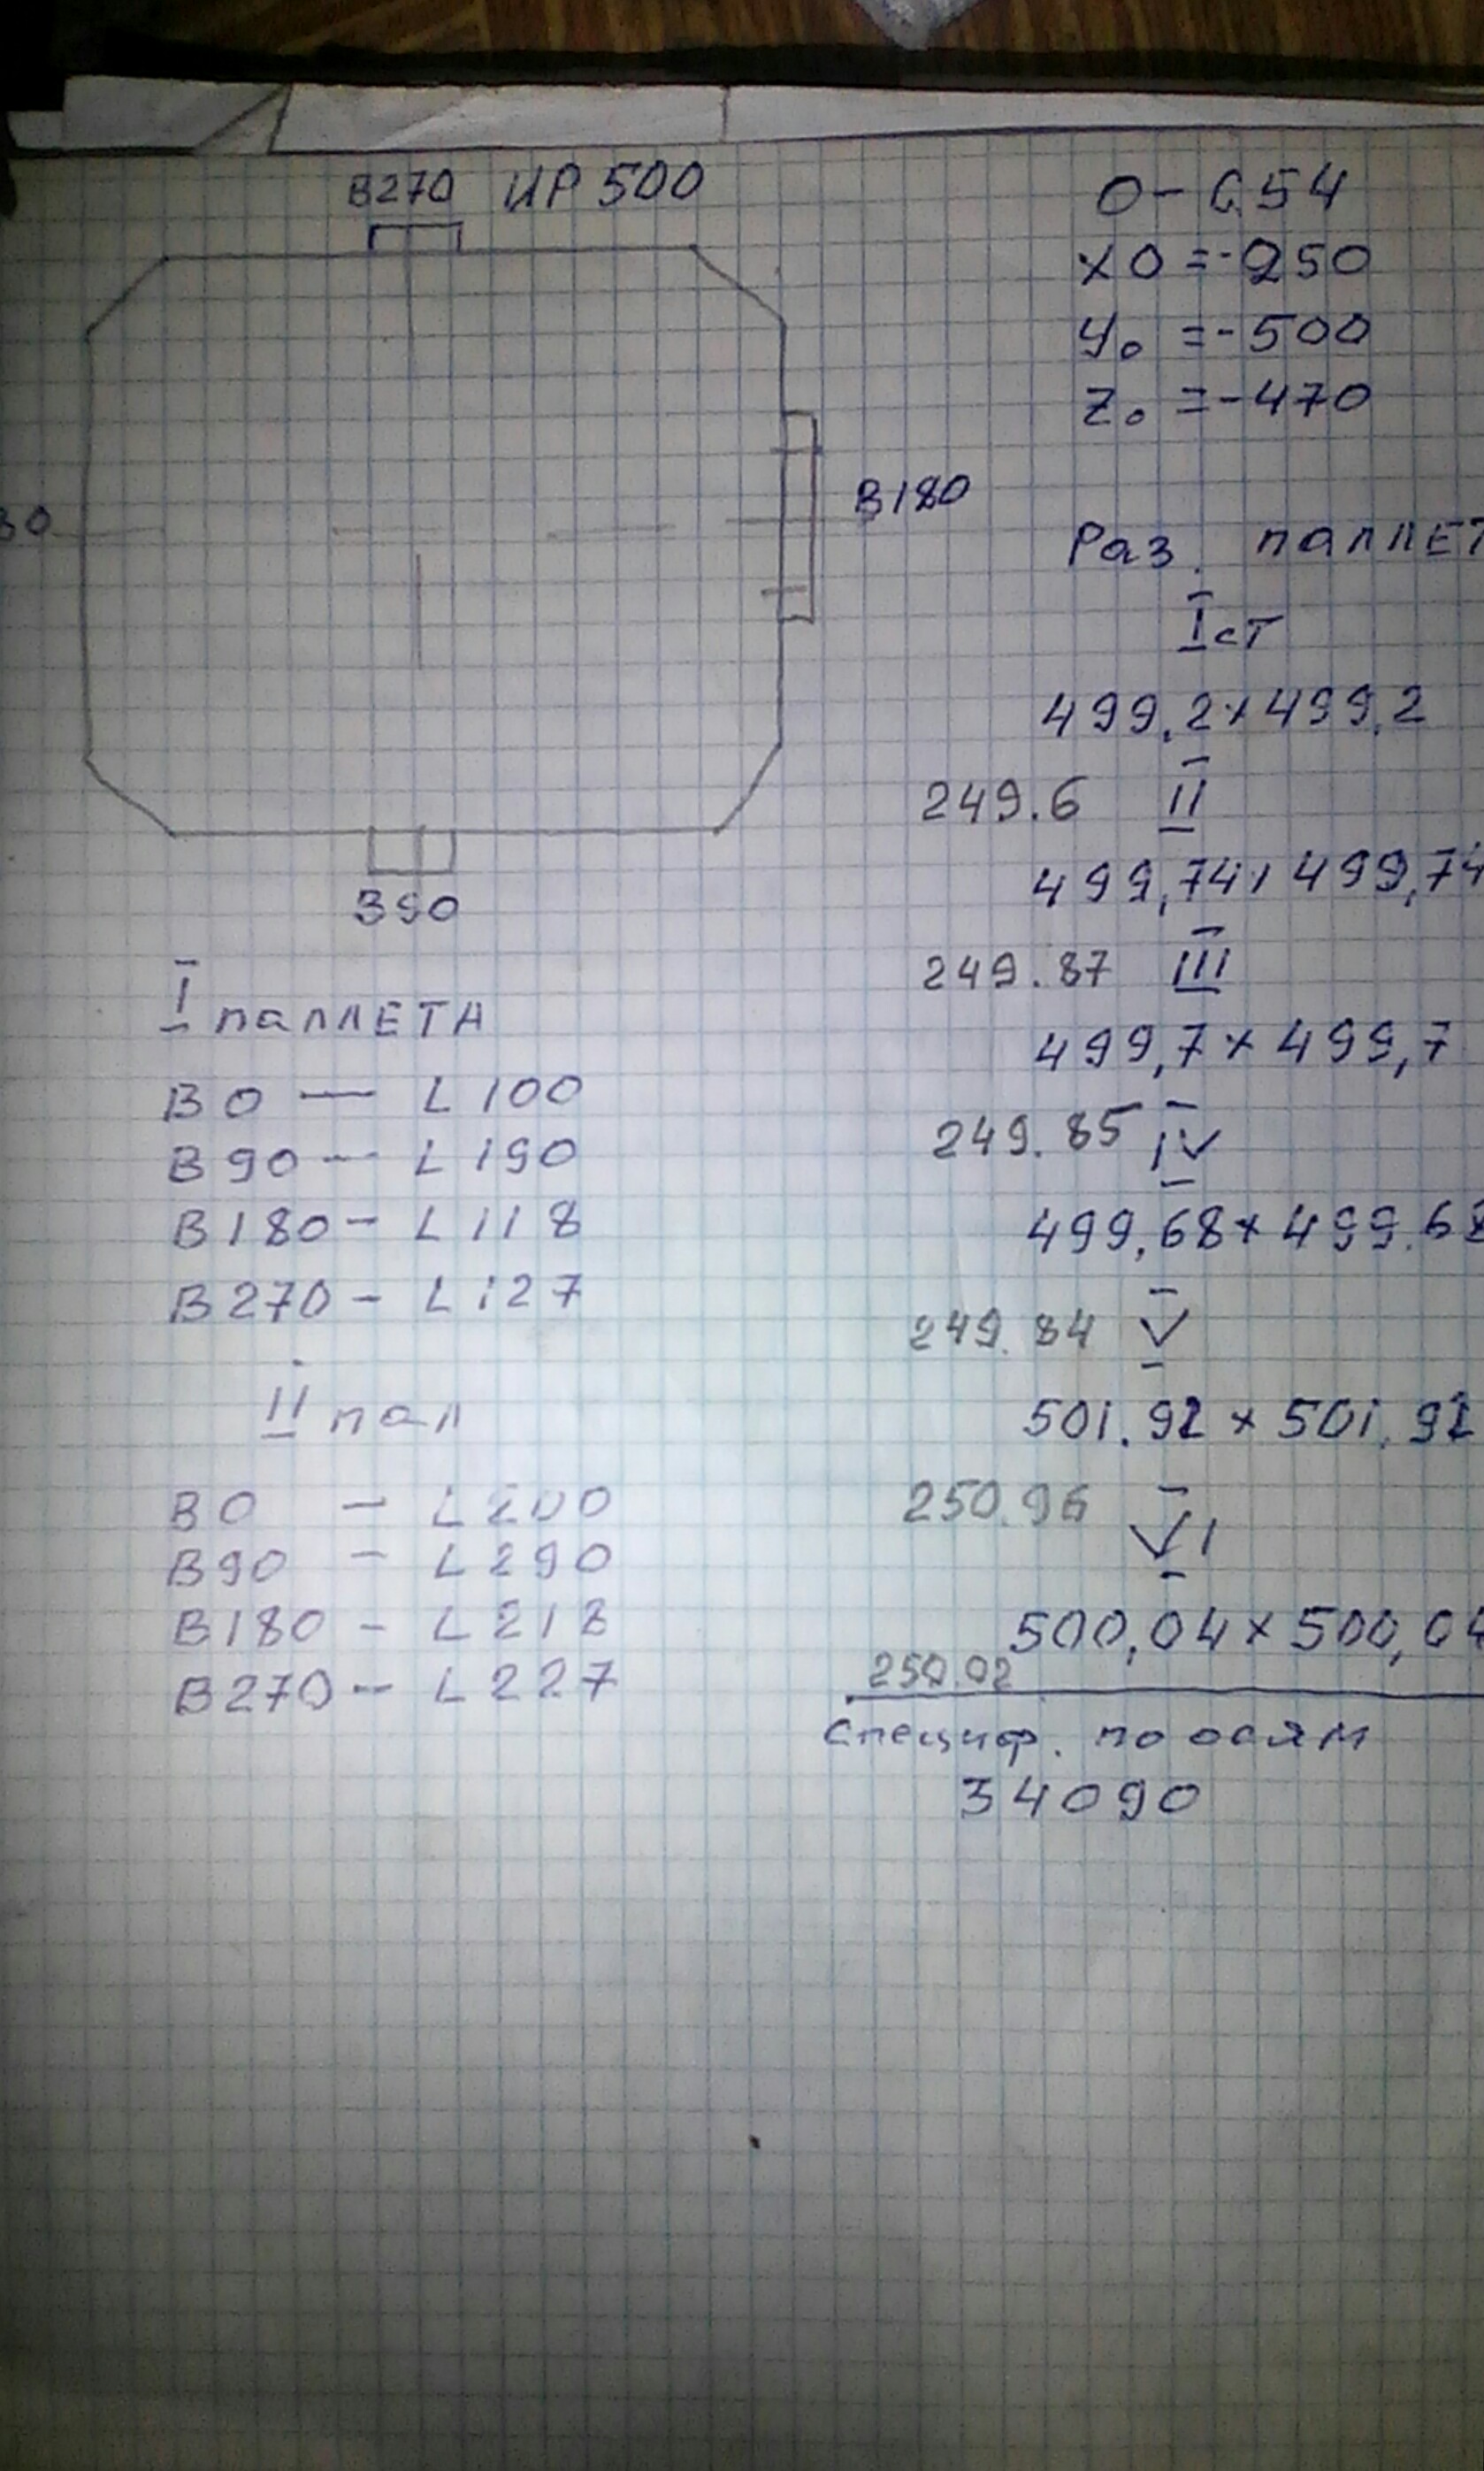 В270 ИР 500
В180
В90
I паллЕТА
В0 — L 100
В90 — L 190
В180 — L 118
В270 — L 127
II пал
В0 — L 200
В90 — L 290
В180 — L 218
В270 — L 227
0 - G54
X0 = -250
Y0 = -500
Z0 = -470
Раз. паллЕТ
I ст
499,2 x 499,2
249.6 II
499,74 x 499,74
249.87 III
499,7 x 499,7
249.85 IV
499,68 x 499.68
249.84 V
501.92 x 501.92
250.96 VI
500,04 x 500,04
250.02
Специф. по осям
34090